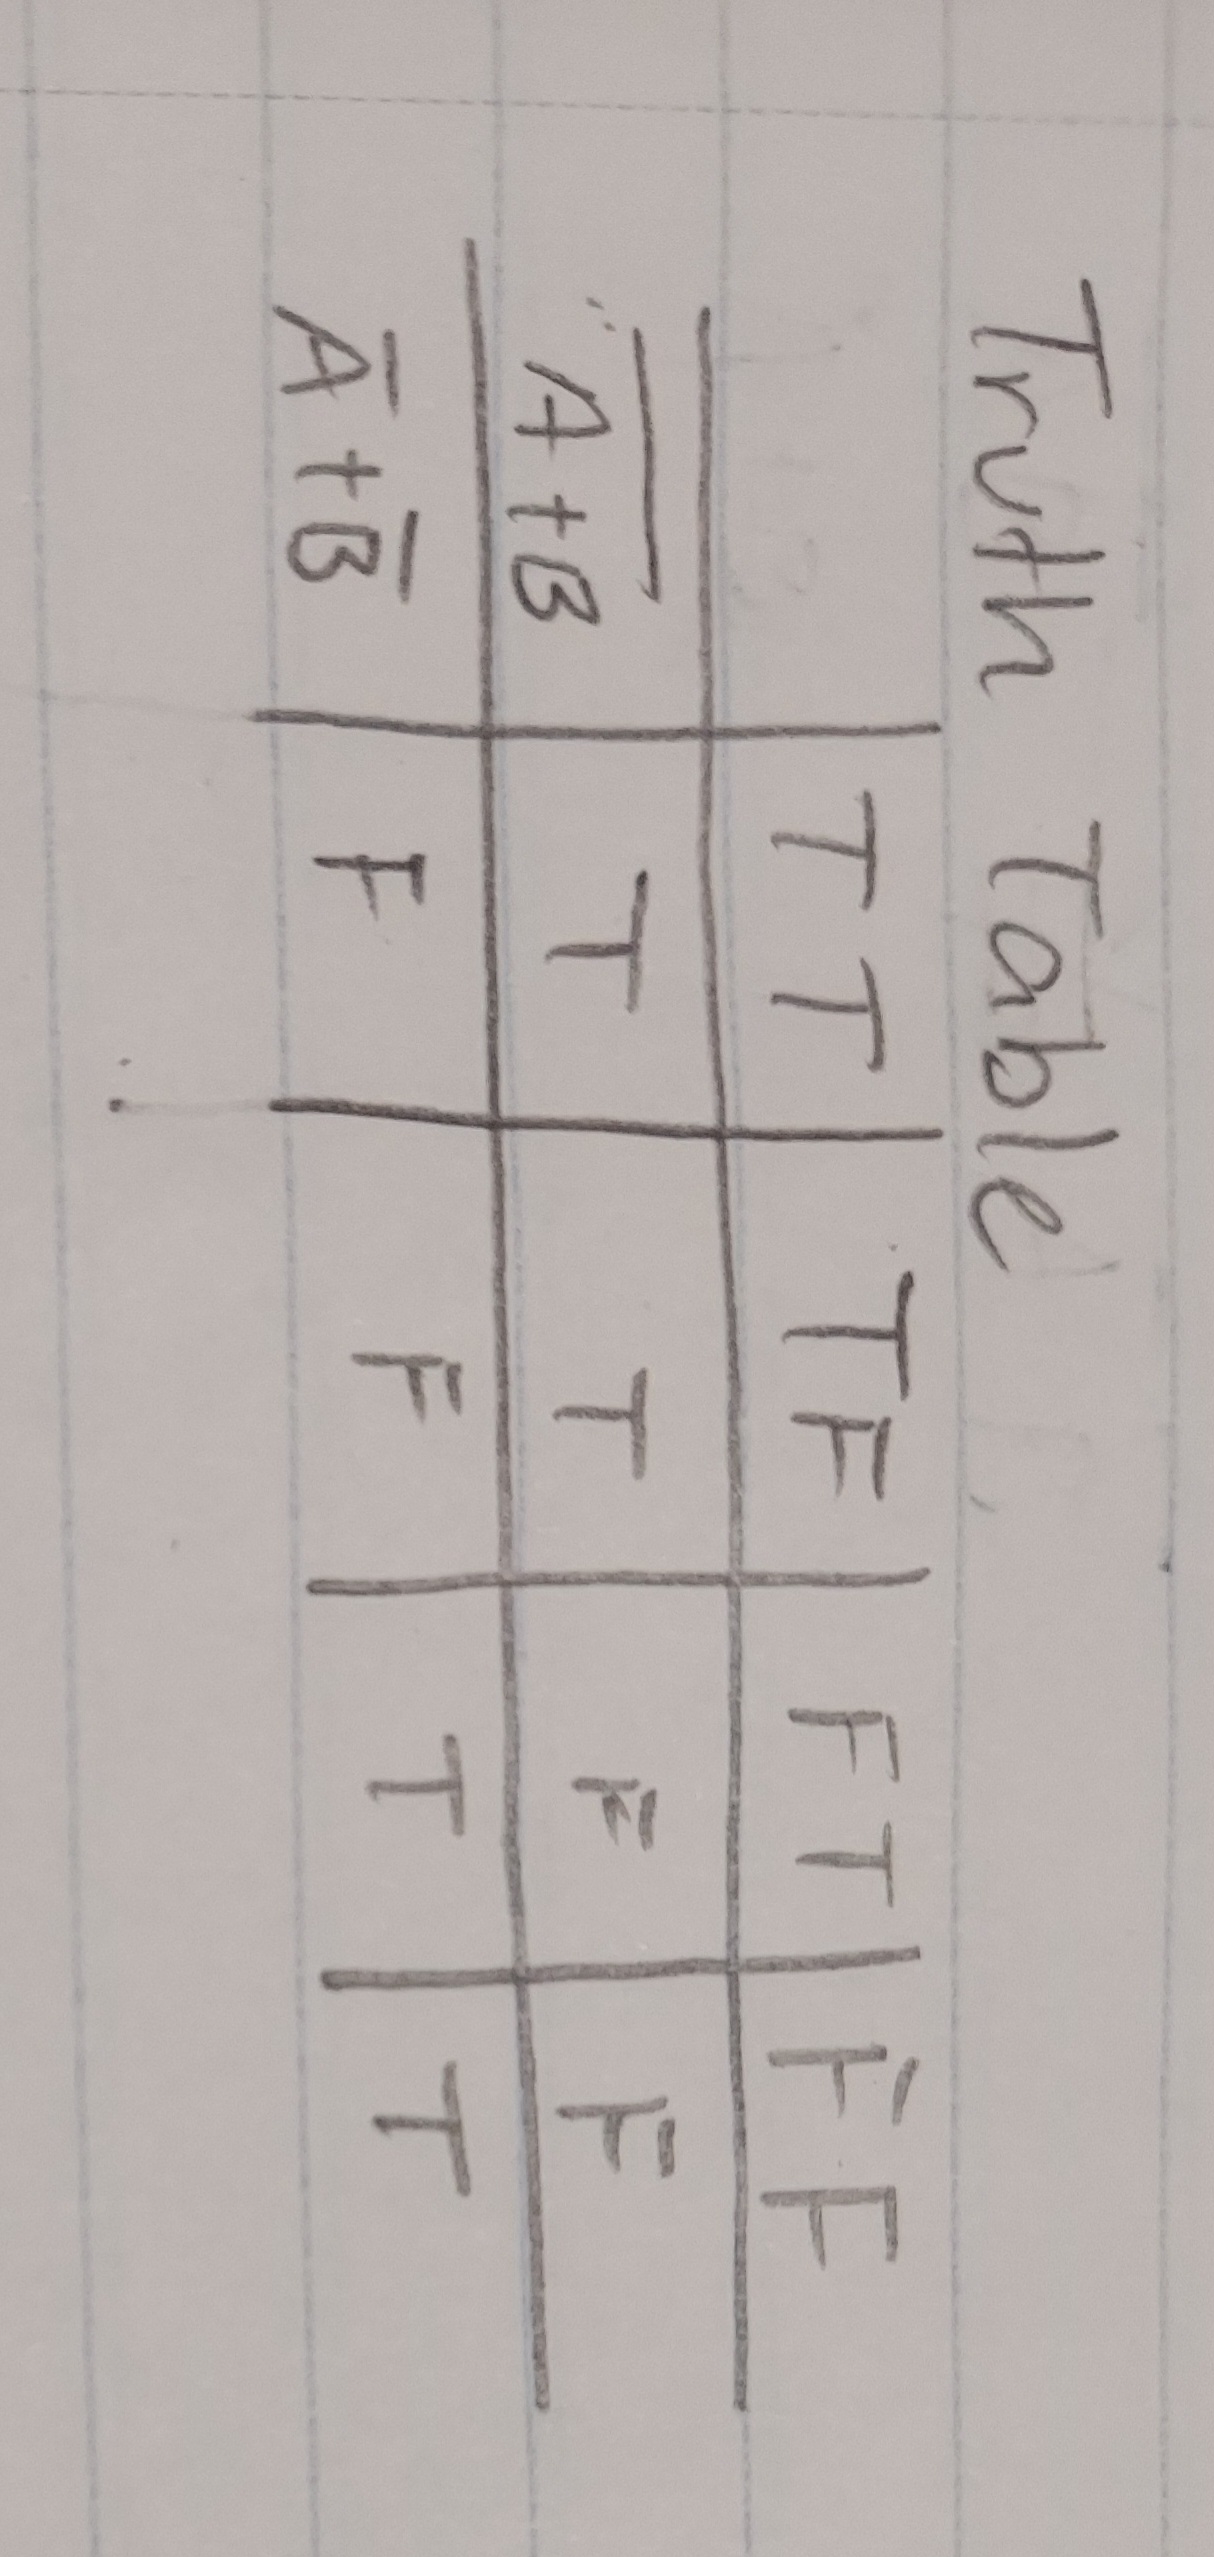 Truth Table
T T T F F T F F
A̅ ̅+̅ ̅B̅ T T F F
A̅ + B̅ F F T T